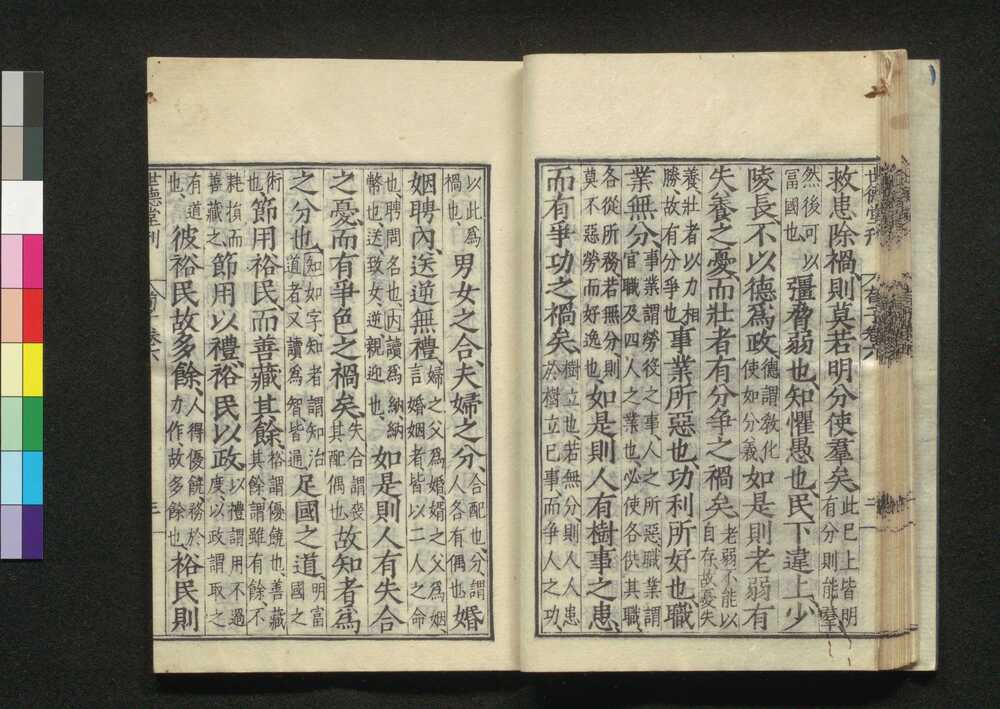 世德堂刊 荀子卷六 二
救患除禍、則莫若明分使羣矣、此已上皆明有分則能羣
然後可以富國也彊脅弱也、知懼愚也、民下違上、少
陵長、不以德為政、德謂教化使知分義如是則老弱有
失養之憂、而壯者有分争之禍矣、老弱不能以自存故憂失
養壯者以力相勝故有分爭也事業所惡也、功利所好也、職
業無分、事業謂勞役之事人之所惡職業謂官職及四人之業也必使各供其職
各從所務若無分則莫不惡勞而好逸也如是則人有樹事之患、
而有爭功之禍矣、樹立也若無分則人人患於樹立已事而争人之功、
以此為禍也男女之合、夫婦之分、合配也分謂人各有偶也婚
姻聘內、送逆無禮、婦之父為婚壻之父為姻言婚姻者皆以二人之命
也聘問名也內讀為納納幣也送致女逆親迎也如是則人有失合
之憂、而有爭色之禍矣、失合謂喪其配偶也故知者為
之分也、知如字知者謂知治道者又讀為智皆通足國之道、明富國之
術也節用裕民、而善藏其餘、裕謂優饒也善藏其餘謂雖有餘不
耗損而善藏之節用以禮、裕民以政、以禮謂用不過度以政謂取之
有道也彼裕民故多餘、人得優饒務於力作故多餘也裕民則
世德堂刊 卷六 三